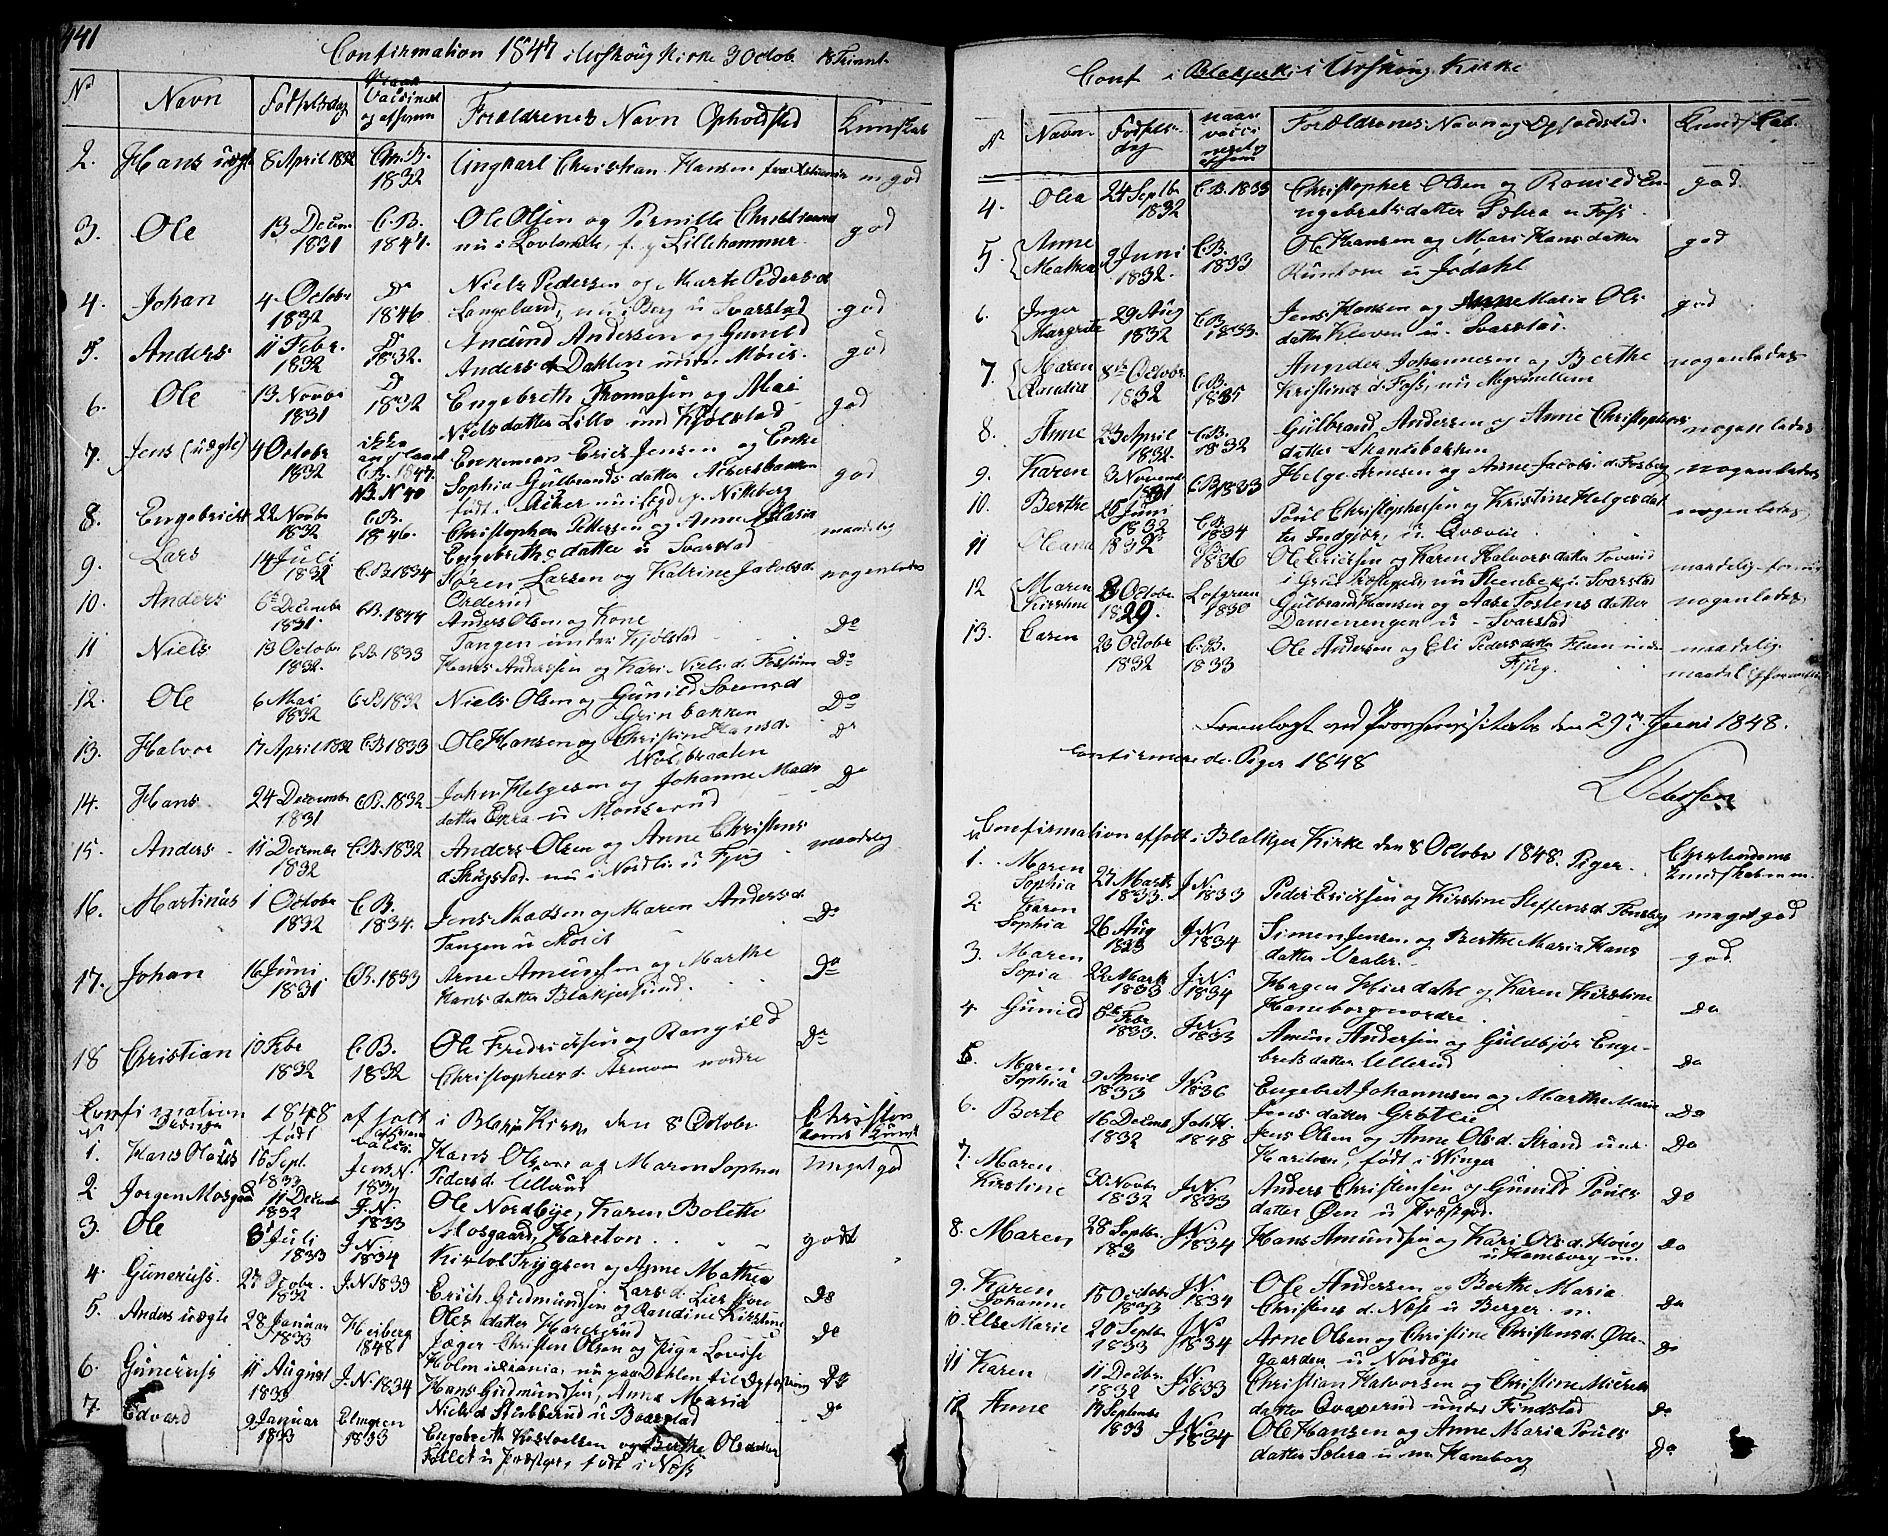 441
Confirmation 1847 i Urskoug Kirke 3 Octob. 18 Trinit.
No Navn Fødselsdag Naar Vaccineret og af hvem Forældrenes Navn Opholdsted Kunskab
2. Hans uægt 8 April 1832 Chr. B. 1832 Ungkarl Christian Hansen fra Xstiania m god
3. Ole 13 Decem. 1831 C.B. 1847. Ole Olsen og Pernille Christians
nu i Lovlande, f. g Lillehammer. god
4. Johan 4 Octobr 1832 Do 1846 Niels Pedersen og Marte Pedersd.
Langeland, nu i Berg u Svarstad god
5. Anders 11 Febr. 1832 D 1832. Amund Andersen og Gunild
Anders d Dahlen under Mörir. god
6. Ole 13 Novbr 1831 D 1832 Engebreth Thomasen og Mari
Nielsdatter Lillo und Kjølstad god
7. Jens (uægte) 9 Octobr 1832 ikke anslaaet C.B. 1847. NB. N 40 Enkeman Erick Jensen og Enke
Sophia Gulbrandsdatter Aabersbakken
født i Aker g. Nittberg god
8. Engebrict 22 Novbr 1832 C.B. 1846. Christopher Pettersen og Anne Maria
Engebrethsdatter u Svarstad maadelig
9. Lars 14 Juli 1832 C.B 1834 Søren Larsen og Katrine Jacobsd.
Orderud nogenledes
10. Anders 6te Decembr 1831. C.B. 1844 Anders Olsen og Kone
Tangen under Kjølstad Do
11 Niels 13 Octobr 1832. C.B. 1833 Hans Anderssen og Kari Niels d. Fossum Do
12. Ole 6 Mai 1832 C.B 1832 Niels Olsen og Gunild Sorensd
Grinbakken Do
13. Halvor 17 April 1832 C.B 1833 Ole Hansen og Christine Hansd.
Nordbraaten Do
14. Hans 24 Decembr 1831 C.B. 1832 John Helgesen og Johanne Mads
datter u Monserud Do
15. Anders 11 Decembr 1832 C.B. 1832 Anders Olsen og Anne Christens
d. Skogstad. nu i Nordlie u Fjug maadelig
16. Martinus 1 Octobr 1832 C.B. 1834. Jens Madsen og Maren Andersd.
Tangen u Mörir Do
17. Johan 16 Juni 1831 C.B. 1833 Arne Amundsen og Marthe
Hansdatter Blakjersund. Do
18 Christian 10 Febr 1832 C.B. 1832 Ole Fredricksen og Rangild
Christophersd. Aremoen nordre Do
Confirmation 1848 afholt i Blakjer Kirke den 8 Octobr. Christendoms Kundsk
No Drenge født
1. Hans Olaus 16 Sept. 1833 Jens N. 1834 Hans Olsen og Maren Sophia
Pedersd. Ullerud meget god
2. Jorgen Mosgaard 11 Decembr 1832 J.N. 1833 Ole Nordbye, Karen Bolette
Mosgaard, Harston
3. Ole 8 Juli 1833 J.N. 1834 Kirstof Trygsen og Anne Mathea
Larsd. Lier store godt
4. Gunerius. 27 Octobr. 1832 J.N 1833 Erich Gudmundsen og Randine Kirstine
Ols datter Harekrud Do
5. Anders uægte 28 Januar 1833 Heiberg 1848 Jæger Christen Olsen og Pige Lovise
Holm i Xrania, nu paa Dahlen til Opfostring Do
6. Gunerius 11 August 1833 J.N. 1834 Hans Gudmundsen, Anne Maria
Niels d. Stubberud u Boarstad Do
7. Edvard 9 Januar 1833 Elmgren 1833 Engebreth Kistoelsen og Berthe Olsdatter
Fallet u Præstgr, født i Næss Do
Conf i Blakjer Ki i Urskoug Kirke
N Navn. Fødselsdag naar vaccineret og af hvem Forældrenes Navn og Opholdsted. Kundskab.
4. Olea 24 Septb 1832 C.B. 1833 Christopher Olsen og Ronild En-
gebretsdatter Sæbra u Foss. god.
5. Anne Mathea 9 Juni 1832. C.B. 1833 Ole Hansen og Mari Hansdatter
Runtom u Jødahl god
6. Inger Margrete 29 Aug 1832 C.B. 1833. Jens Hansen og Anne Maria Ols
datter Kleven u. Svarstad. god
7. Maren 8de Octobr. 1832 C.B. 1835 Johannesen og Berthe
Kristines d. Foss, nu Mogsmellem nogenledes
8. Anne 23 April 1832. C.B. 1832 Gulbrand Andersen og Anne Christophers
datter Skandsbakken nogenledes
9. Karen 3 Novemb 1831 C.B 1833 Helge Arnesen og Anne Jacobs. d. Fosberg nogenledes
10. Berthe 25 Juni 1832 C.B. 1834 Poul Christophersen og Kristine Helgesdat
ter Indgjør, u. Qvævlie nogenledes
11 Oleana 1832 Do 1836 Ole Ericksen og Karen Halvorsdatter Toverud
i Grue Prstegield, nu Steenbek i Svarstad maadelig
12 Maren Kirstine 8 Octobr 1829. Lofgreen 1830 Gulbrand Hansen og Aase Tostensdatter
Damenengen u - Svarstad nogenledes
13. Caren 23 Octobr 1832 C.B. 1833 Ole Andersen og Eli Pedersdatter Floen under
Fjug. maadelig
maadel.
Fremlagt ved Provsevisitats den 29de Juni 1848.
Confirmerede Piger 1848
Confirmation afholt i Blakjer Kirke den 8 Octobr 1848. Piger. Christendoms Kundskab m m.
1. Maren Sophia 27 Marts 1833. J.N. 1833 Peder Ericksen og Kirstine Steffens d. Tonsberg meget god
2. Karen Sophia 26 Aug 1833 J.N 1834 Simen Jensen og Berthe Maria Hans
datter Vaaler. god.
3. Maren Sopia 22 Marts 1833 J.N. 1834 Hagen Hierdahl og Karen Kirstine
Haneborg nordre. Do
4. Gunild 8de Febr 1833. J.N 1833 Amun Andersen og Guldbjør Enge-
bretsdatter Ullerud Do
5. Maren Sophia 9 April 1833 J.N. 1836 Engebret Johannesen og Marthe Maria
Jens datter Grøtlie Do
6. Berte 16 Decemb 1832 Joh H. 1848 Jens Olsen og Anne Ols d. Strand und.
Harstoen, født i Winger Do
7. Maren Kirstine 30 Novbr 1832 J.N. 1833 Anders Christensen og Gunild Pouls
datter Øen u Præstgrd. Do
8. Maren 28 Septbr 183 J.N. 1834 Hans Amundsen og Kari Ols d. Houg
u Haneborg n. Do
9. Karen Johanne 15 Octobr 1833 J.N. 1834 Ole Andersen og Berthe Maria
Christens d. Næss u Berger n. Do
10. Else Marie 20 Septbr 1833 J.N. 1834 Arne Olsen og Christine Christensd. Øde-
gaarden u Nordbye Do
11 Karen 11 Decbr. 1832 J.N. 1833 Christian Halvorsen og Christine Michels
datter Qvaperud under Findstad Do
12 Anne 14 Septembr 1833 J.N. 1834 Ole Hansen og Anne Maria Pouls
datter Sæbra u nu Haneborg Do